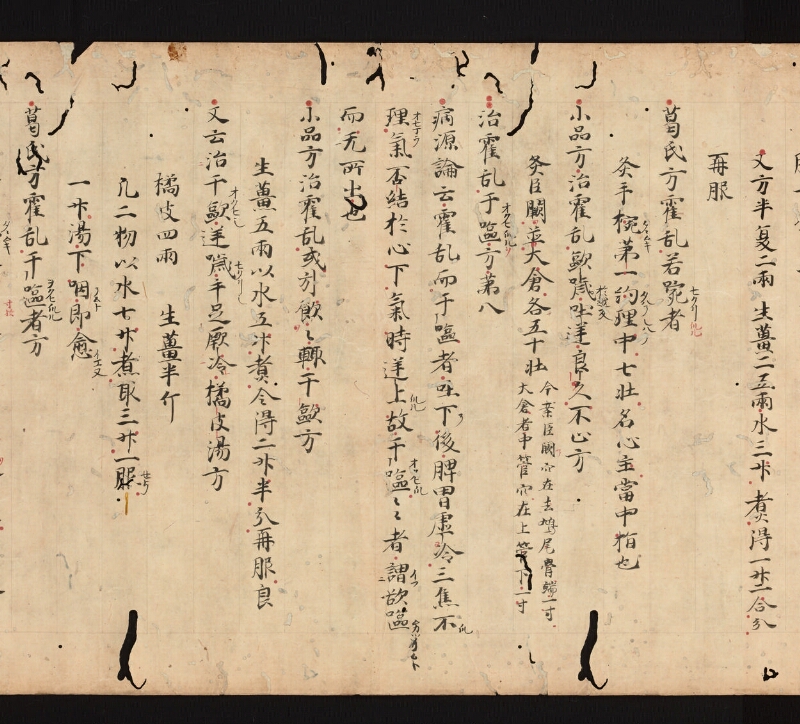 又方半夏二兩 生薑二五兩水三升煮得一升二合分
再服
葛氏方霍乱若噦者
灸手椀第一約理中七壮名心主當中指也
小品方治霍乱歐噦吐逆良久不止方
灸臣闕並大倉各五十壮 今案臣闕穴在去鳩尾骨端一寸
大倉者中管穴在上管下一寸
治霍乱干嘔方第八
病源論云霍乱而干嘔者吐下後脾胃虚冷三焦不
理氣否結於心下氣時逆上故干嘔〻者謂欲嘔
而无所出也
小品方治霍乱或引飲〻輒干歐方
生薑五兩以水五升煮令得二升半分再服良
又云治干歐逆噦手足厥冷橘皮湯方
橘皮四兩 生薑半斤
凡二物以水七升煮取三升一服
一升湯下咽即愈
葛氏方霍乱干嘔者方